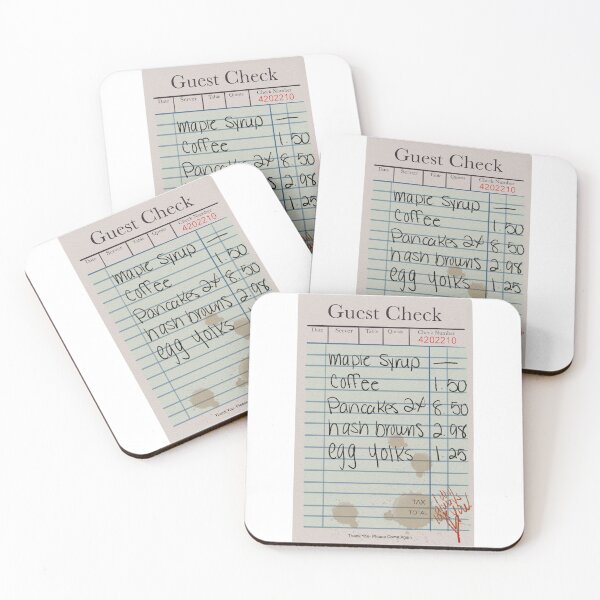 Guest Check
Date Server Table Guests Check Number
4202210
maple syrup —
coffee 1 50
Pancakes 2x 8 50
2 98
1 25
Guest Check
Date Server Table Guests Check Number
4202210
maple syrup —
coffee 1 50
Pancakes 2x 8 50
hash browns 2 98
egg yolks 1 25
Guest Check
Date Server Table Guests Check Number
4202210
maple syrup —
coffee 1 50
Pancakes 2x 8 50
hash browns 2 98
egg yolks
Guest Check
Date Server Table Guests Check Number
4202210
maple syrup —
coffee 1 50
Pancakes 2x 8 50
hash browns 2 98
egg yolks 1 25
TAX
TOTAL
Thank You- Please Come Again